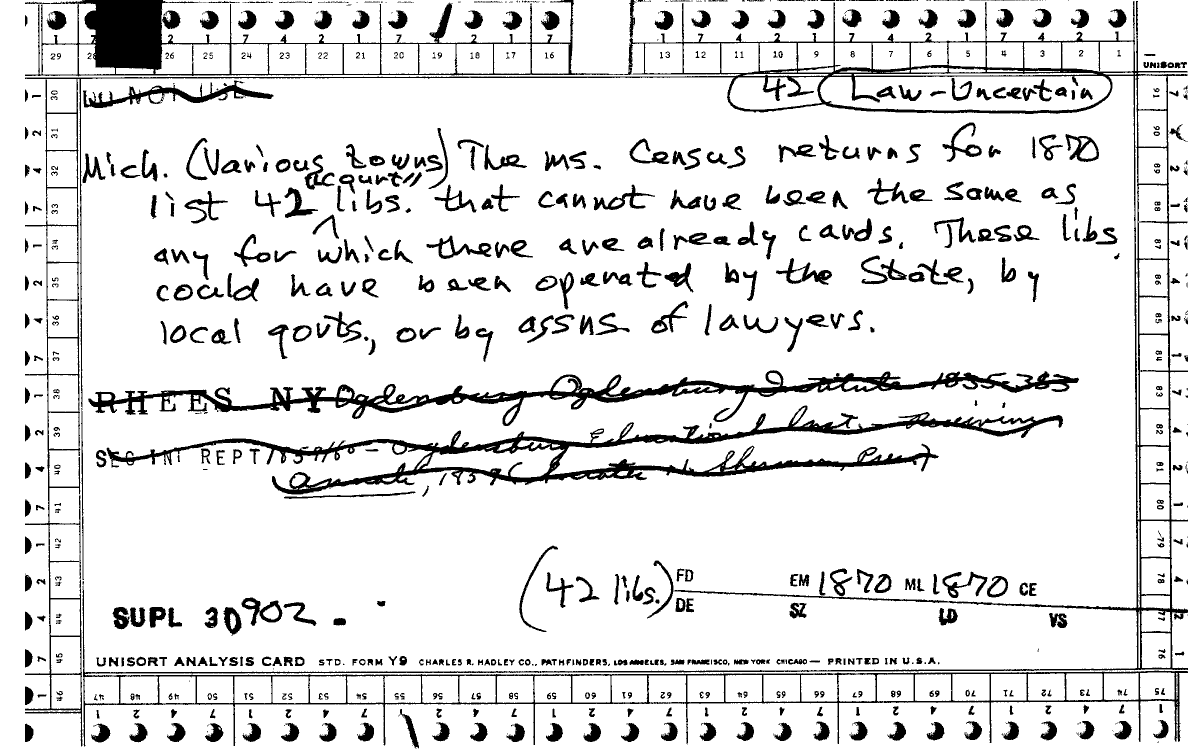 1 7 2 1 7 4 2 1 7 4 2 1 7 4 2 1 7 4 2 1 7 4 2 1
29 28 26 25 24 23 22 21 20 19 18 17 16 13 12 11 10 9 8 7 6 5 4 3 2 1
UNISORT
DO NOT USE
42 Law-Uncertain
Mich. (Various towns) The ms. Census returns for 1870
court
list 42 libs. that cannot have been the same as
any for which there are already cards. These libs
could have been operated by the State, by
local govts., or by assns. of lawyers.
RHEES NY Ogdensburg Ogdensburg Institute 1835-383
SEC INT REPT 1859/60 - Ogdensburg Educational Inst. - Receiving
Annals, 1859 (Socrates N. Sherman, Pres.)
(42 libs.) FD EM 1870 ML 1870 CE
DE SZ LD VS
SUPL 30902 -
UNISORT ANALYSIS CARD STD. FORM Y9 CHARLES R. HADLEY CO., PATHFINDERS, LOS ANGELES, SAN FRANCISCO, NEW YORK CHICAGO — PRINTED IN U.S.A.
47 48 49 50 51 52 53 54 55 56 57 58 59 60 61 62 63 64 65 66 67 68 69 70 71 72 73 74 75